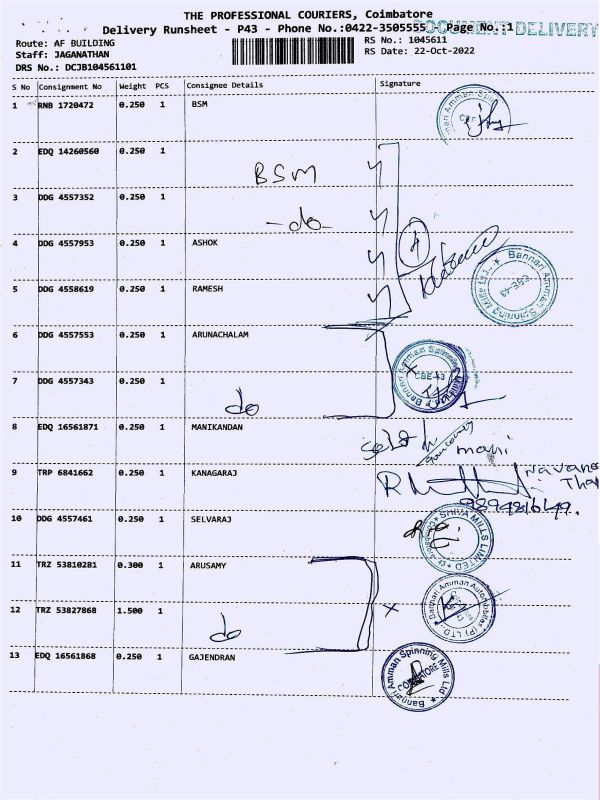 THE PROFESSIONAL COURIERS, Coimbatore
Delivery Runsheet - P43 - Phone No.:0422-3505555 - Page No.:1
DOCUMENT DELIVERY
Route: AF BUILDING
RS No.: 1045611
Staff: JAGANATHAN
RS Date: 22-Oct-2022
DRS No.: DCJB104561101
S No Consignment No Weight PCS Consignee Details Signature
1 RNB 1720472 0.250 1 BSM
2 EDQ 14260560 0.250 1 BSM
3 DDG 4557352 0.250 1 -do-
4 DDG 4557953 0.250 1 ASHOK
4
5 DDG 4558619 0.250 1 RAMESH
Bannari Amman Spinning Mills Ltd. CBE-43
6 DDG 4557553 0.250 1 ARUNACHALAM
Bannari Amman Spinning Mills Ltd CBE-43
7 DDG 4557343 0.250 1 do
8 EDQ 16561871 0.250 1 MANIKANDAN
self mani
9 TRP 6841662 0.250 1 KANAGARAJ
10 DDG 4557461 0.250 1 SELVARAJ
SHIVA MILLS LIMITED
11 TRZ 53810281 0.300 1 ARUSAMY
Bannari Amman Automobiles (P) LTD
12 TRZ 53827868 1.500 1 do
13 EDQ 16561868 0.250 1 GAJENDRAN
Bannari Amman Spinning Mills Ltd COIMBATORE